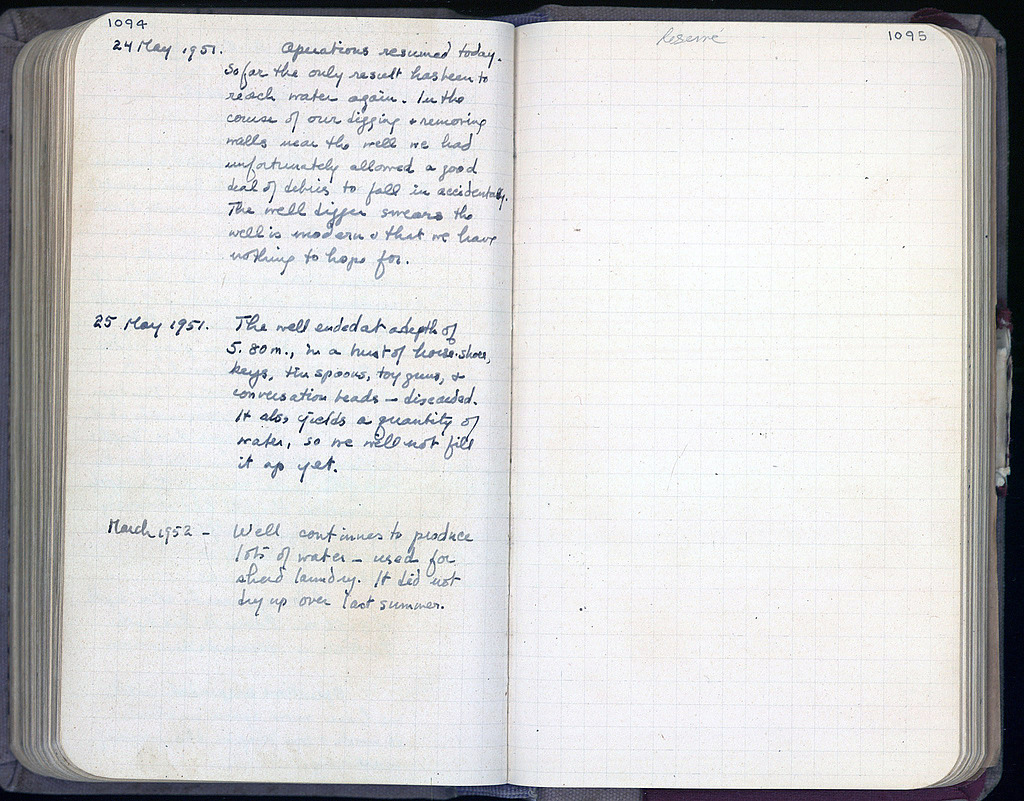 1094
24 May 1951. Operations resumed today.
So far the only result has been to
reach water again. In the
course of our digging & removing
walls near the well we had
unfortunately allowed a good
deal of debris to fall in accidentally.
The well digger swears the
well is modern & that we have
nothing to hope for.
25 May 1951. The well ended at a depth of
5.80m., in a burst of horse-shoes,
keys, tin spoons, toy guns, &
conversation beads – discarded.
It also yields a quantity of
water, so we will not fill
it up yet.
March 1952 – Well continues to produce
lots of water – used for
sherd laundry. It did not
dry up over last summer.
Reserve
1095